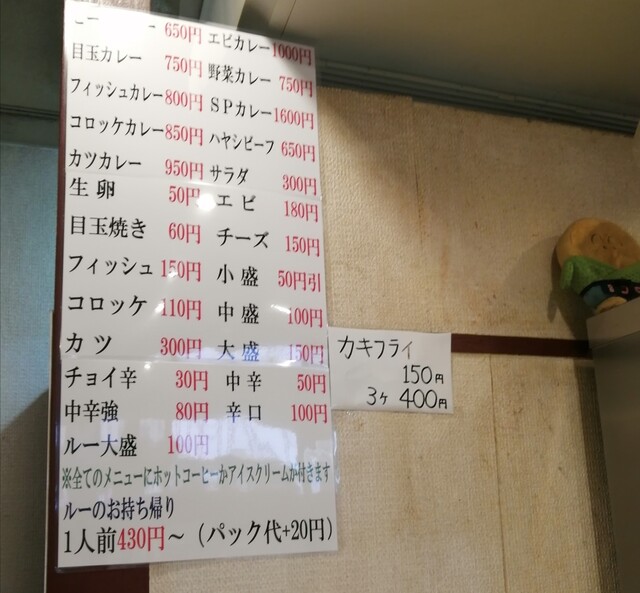 650円 エビカレー 1000円
目玉カレー 750円 野菜カレー 750円
フィッシュカレー 800円 SPカレー 1600円
コロッケカレー 850円 ハヤシビーフ 650円
カツカレー 950円 サラダ 300円
生卵 50円 エビ 180円
目玉焼き 60円 チーズ 150円
フィッシュ 150円 小盛 50円引
コロッケ 110円 中盛 100円
カツ 300円 大盛 150円
チョイ辛 30円 中辛 50円
中辛強 80円 辛口 100円
ルー大盛 100円
※全てのメニューにホットコーヒーかアイスクリームか付きます
ルーのお持ち帰り
1人前430円～（パック代+20円）
カキフライ
150円
3ヶ 400円